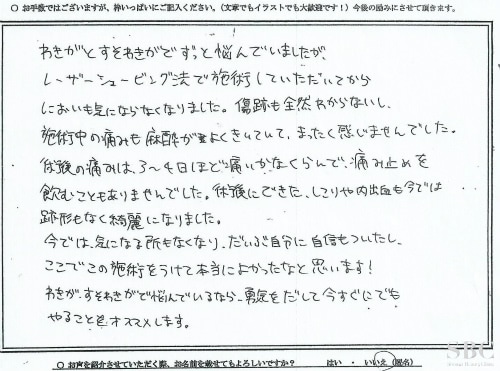 ○ お手数ではございますが、枠いっぱいにご記入ください。（文章でもイラストでも大歓迎です！）今後の励みにさせて頂きます。
わきがとすそわきがでずっと悩んでいましたが、
レーザーシェービング法で施術していただいてから
においも気にならなくなりました。傷跡も全然わからないし、
施術中の痛みも麻酔がよくきいていて、まったく感じませんでした。
術後の痛みは、3〜4日ほど痛いかなくらいで、痛み止めを
飲むこともありませんでした。術後にできた、しこりや内出血も今では
跡形もなく綺麗になりました。
今では、気になる所もなくなり、だいぶ自分に自信もついたし、
ここでこの施術をうけて本当によかったなと思います！
わきが、すそわきがで悩んでいるなら、勇気をだして今すぐにでも
やることをオススメします。
SBC
○ お声を紹介させていただく際、お名前を載せてもよろしいですか？　はい ・ いいえ（匿名）